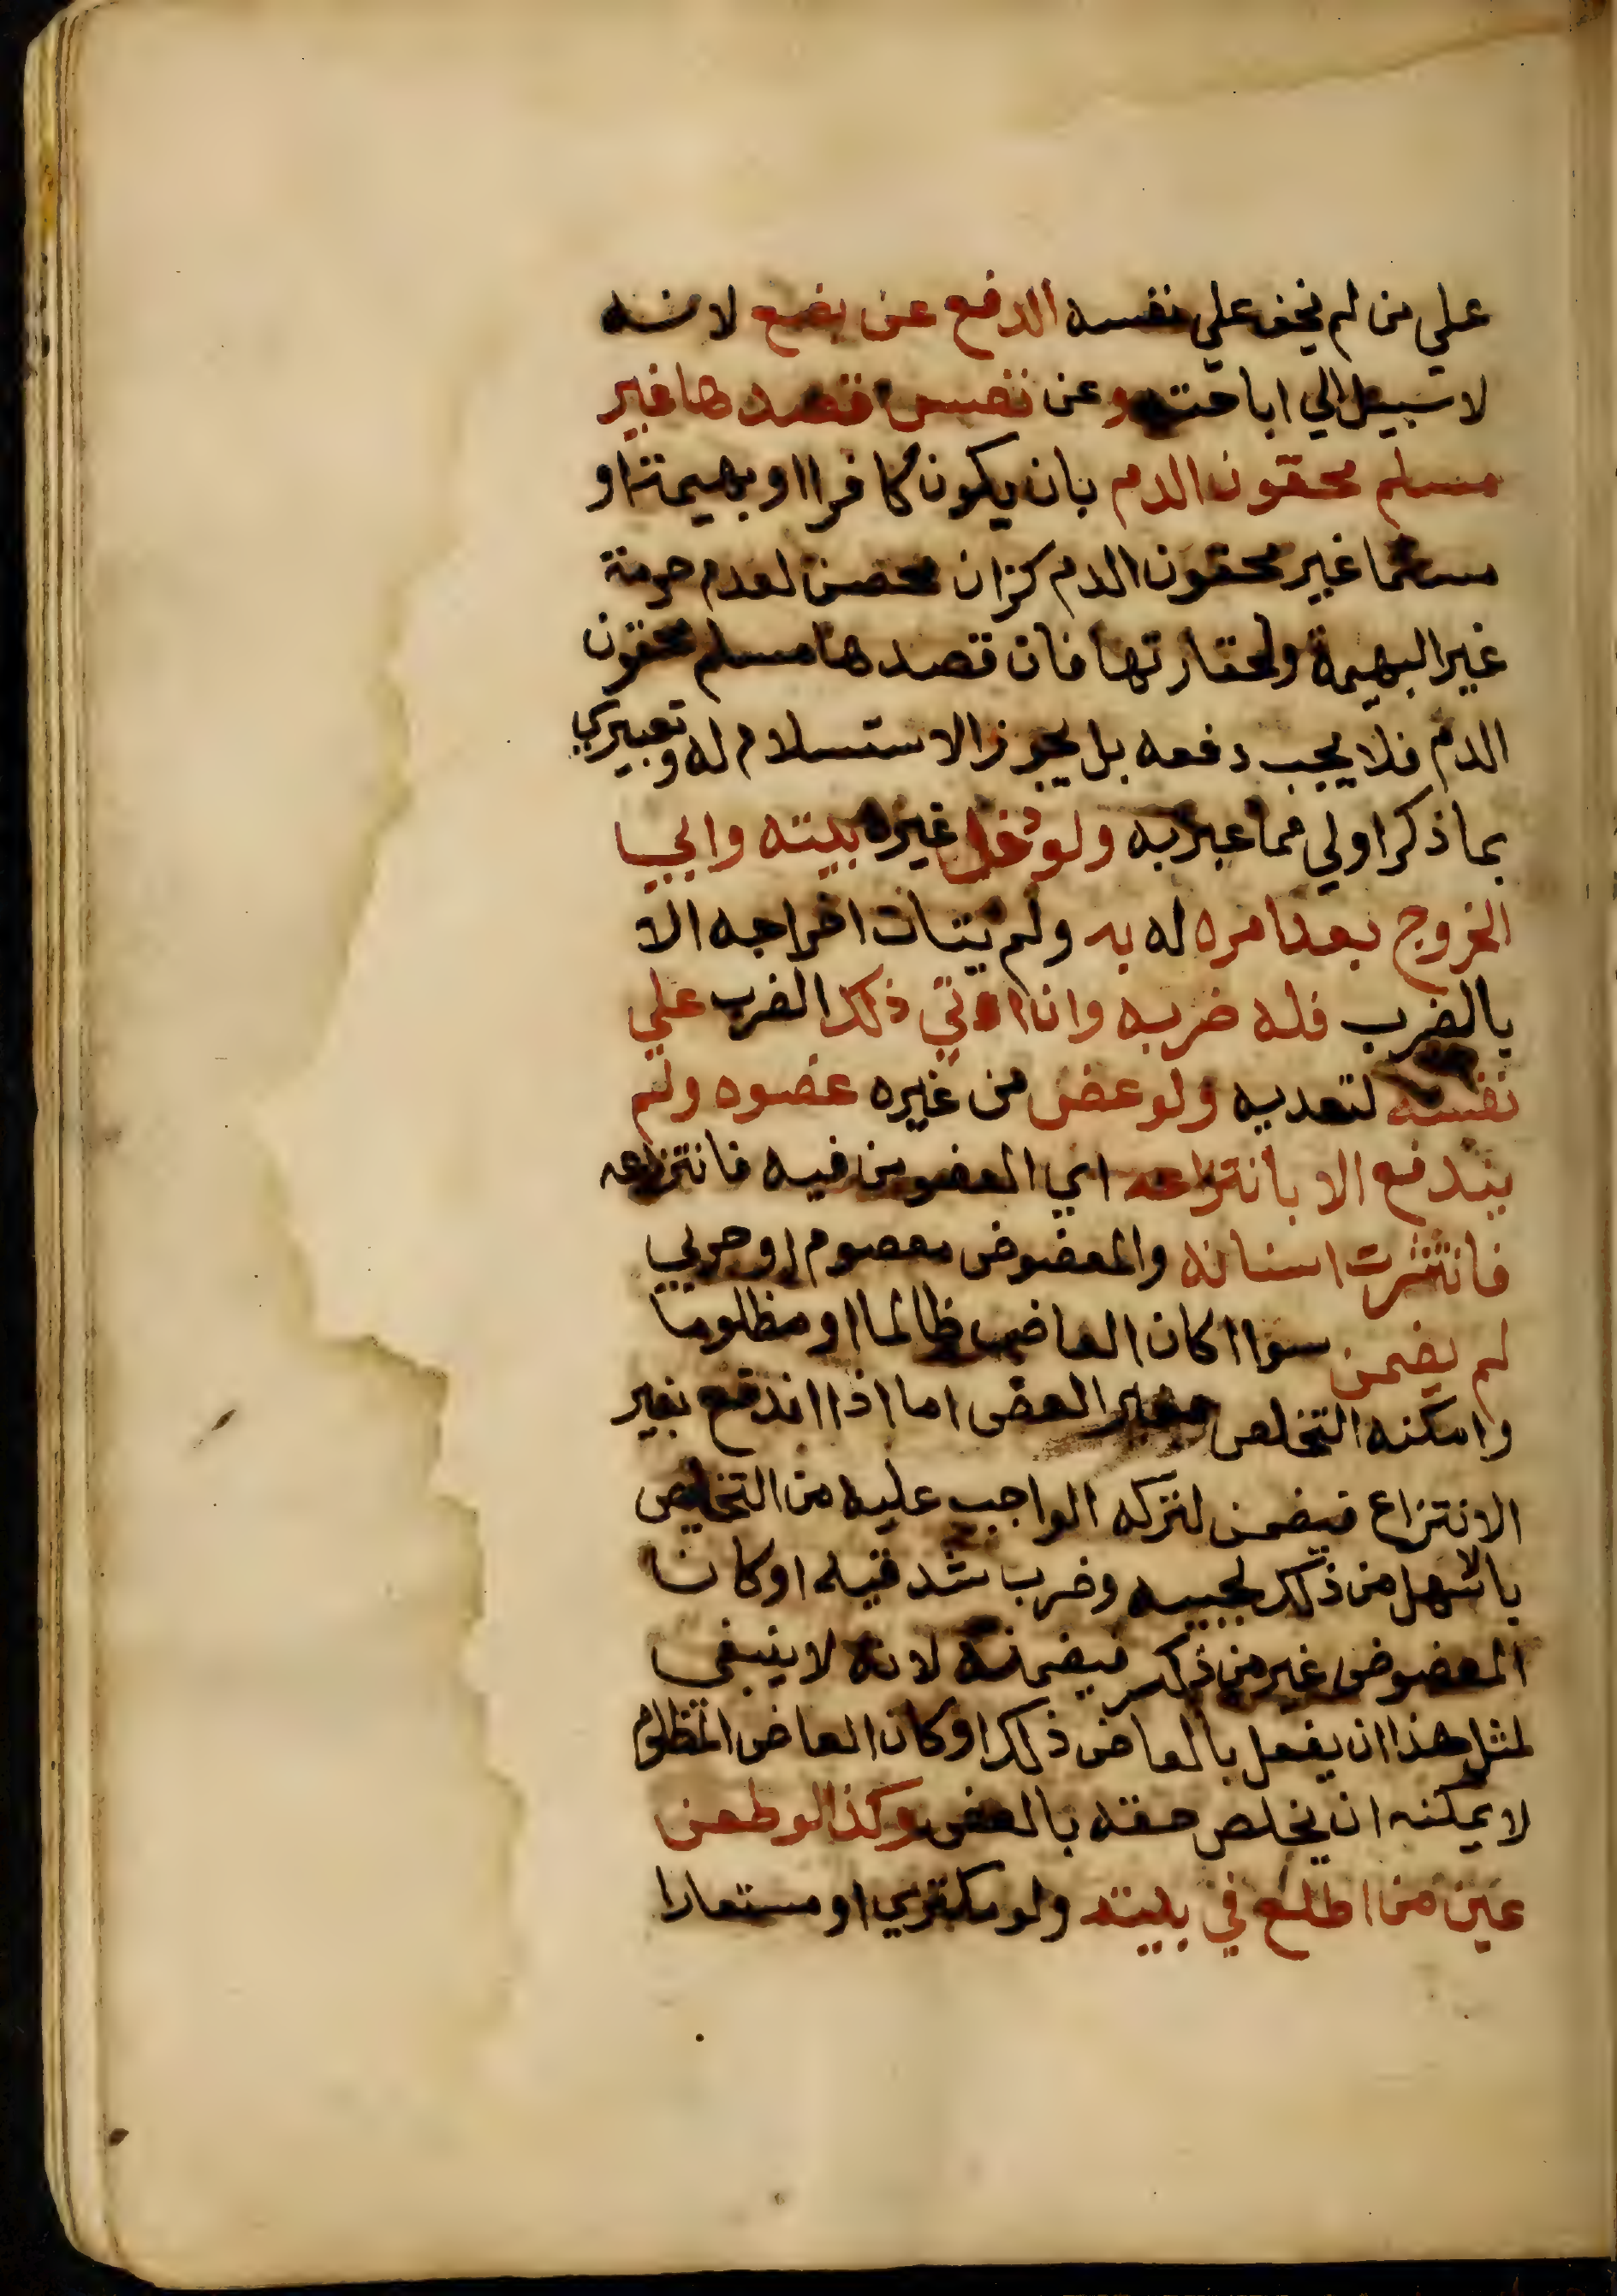 علي من لم يخف علي نفسه الدفع عن بضع لانه
لا سبيل الي اباحته وعن نفس قصدها غير
مسلم محقون الدم بان يكون كافرا او بهيمة او
مسلما غير محقون الدم كزان محصن لعدم حرمة
غير البهيمة ولحقارتها فان قصدها مسلم محقون
الدم فلا يجب دفعه بل يجوز الاستسلام له وتعبيري
بما ذكر اولي مما عبر به ولو دخل غيره بيته وابي
الخروج بعد امره له به ولم يتات اخراجه الا
بالضرب فله ضربه وان اتي ذلك الضرب علي
نفسه لتعديه ولو عض من غيره عضوه ولم
يندفع الا بانتزاعه اي العضو من فيه فانتزعه
فانتثرت اسنانه والمعضوض معصوم او حربي
لم يضمن سوا اكان العاض ظالما او مظلوما
وامكنه التخلص بغير العض اما اذا اندفع بغير
الانتزاع فيضمن لتركه الواجب عليه من التخليص
بالاسهل من ذلك لحييه وضرب شدقيه او كان
المعضوض غير من ذكر فيضمنه لانه لا ينبغي
لمثل هذا ان يفعل بالعاض ذلك او كان العاض المظلوم
لا يمكنه ان يخلص حقه بالعض وكذا لو طعن
عين من اطلع في بيته ولو مكتري او مستعارا